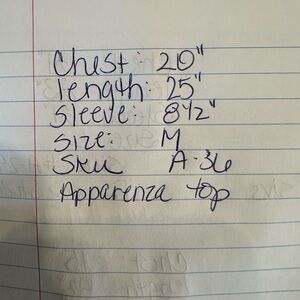 Chest: 20"
length: 25"
Sleeve: 8 1/2"
Size: M
SKU A-36
Apparenza top